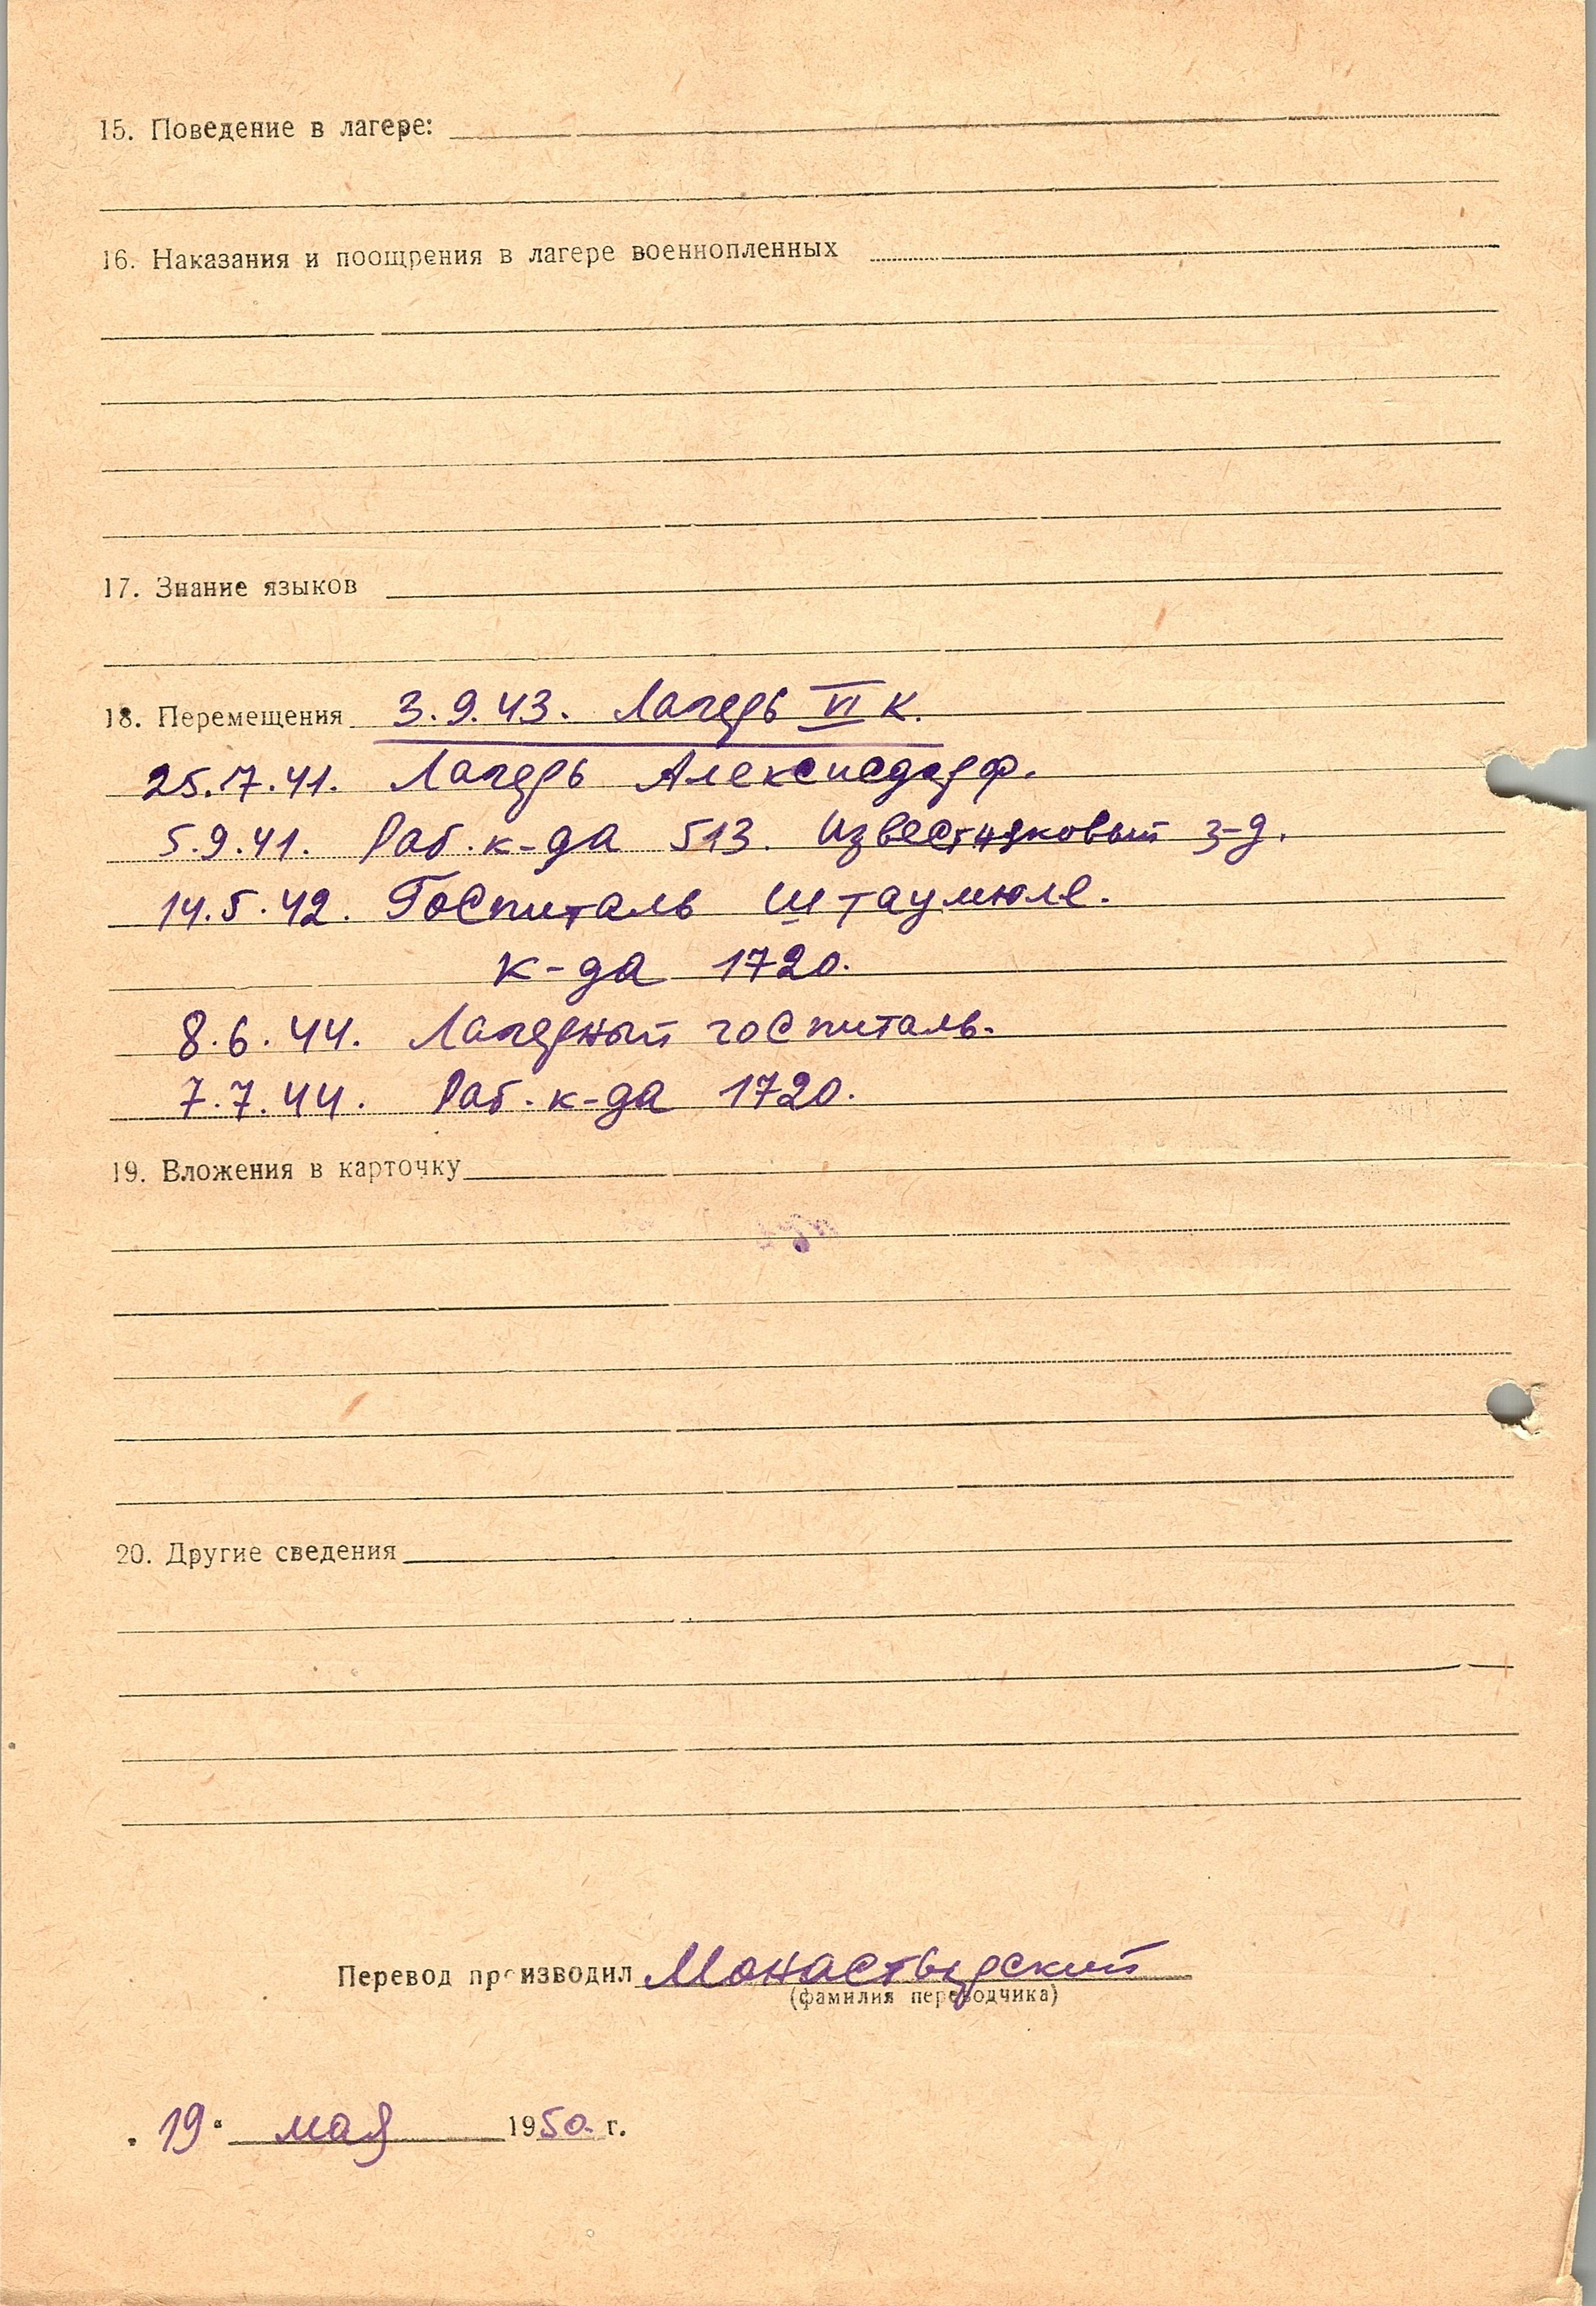 15. Поведение в лагере:
16. Наказания и поощрения в лагере военнопленных
17. Знание языков
18. Перемещения 3.9.43. Лагерь VI К.
25.7.41. Лагерь Алексисдорф.
5.9.41. Раб. к-да 513. Известняковый з-д.
14.5.42. Госпиталь Штаумюле.
к-да 1720.
8.6.44. Лагерный госпиталь.
7.7.44. Раб. к-да 1720.
19. Вложения в карточку
20. Другие сведения
Перевод производил Монастырский
(фамилия переводчика)
„19“ мая 1950 г.